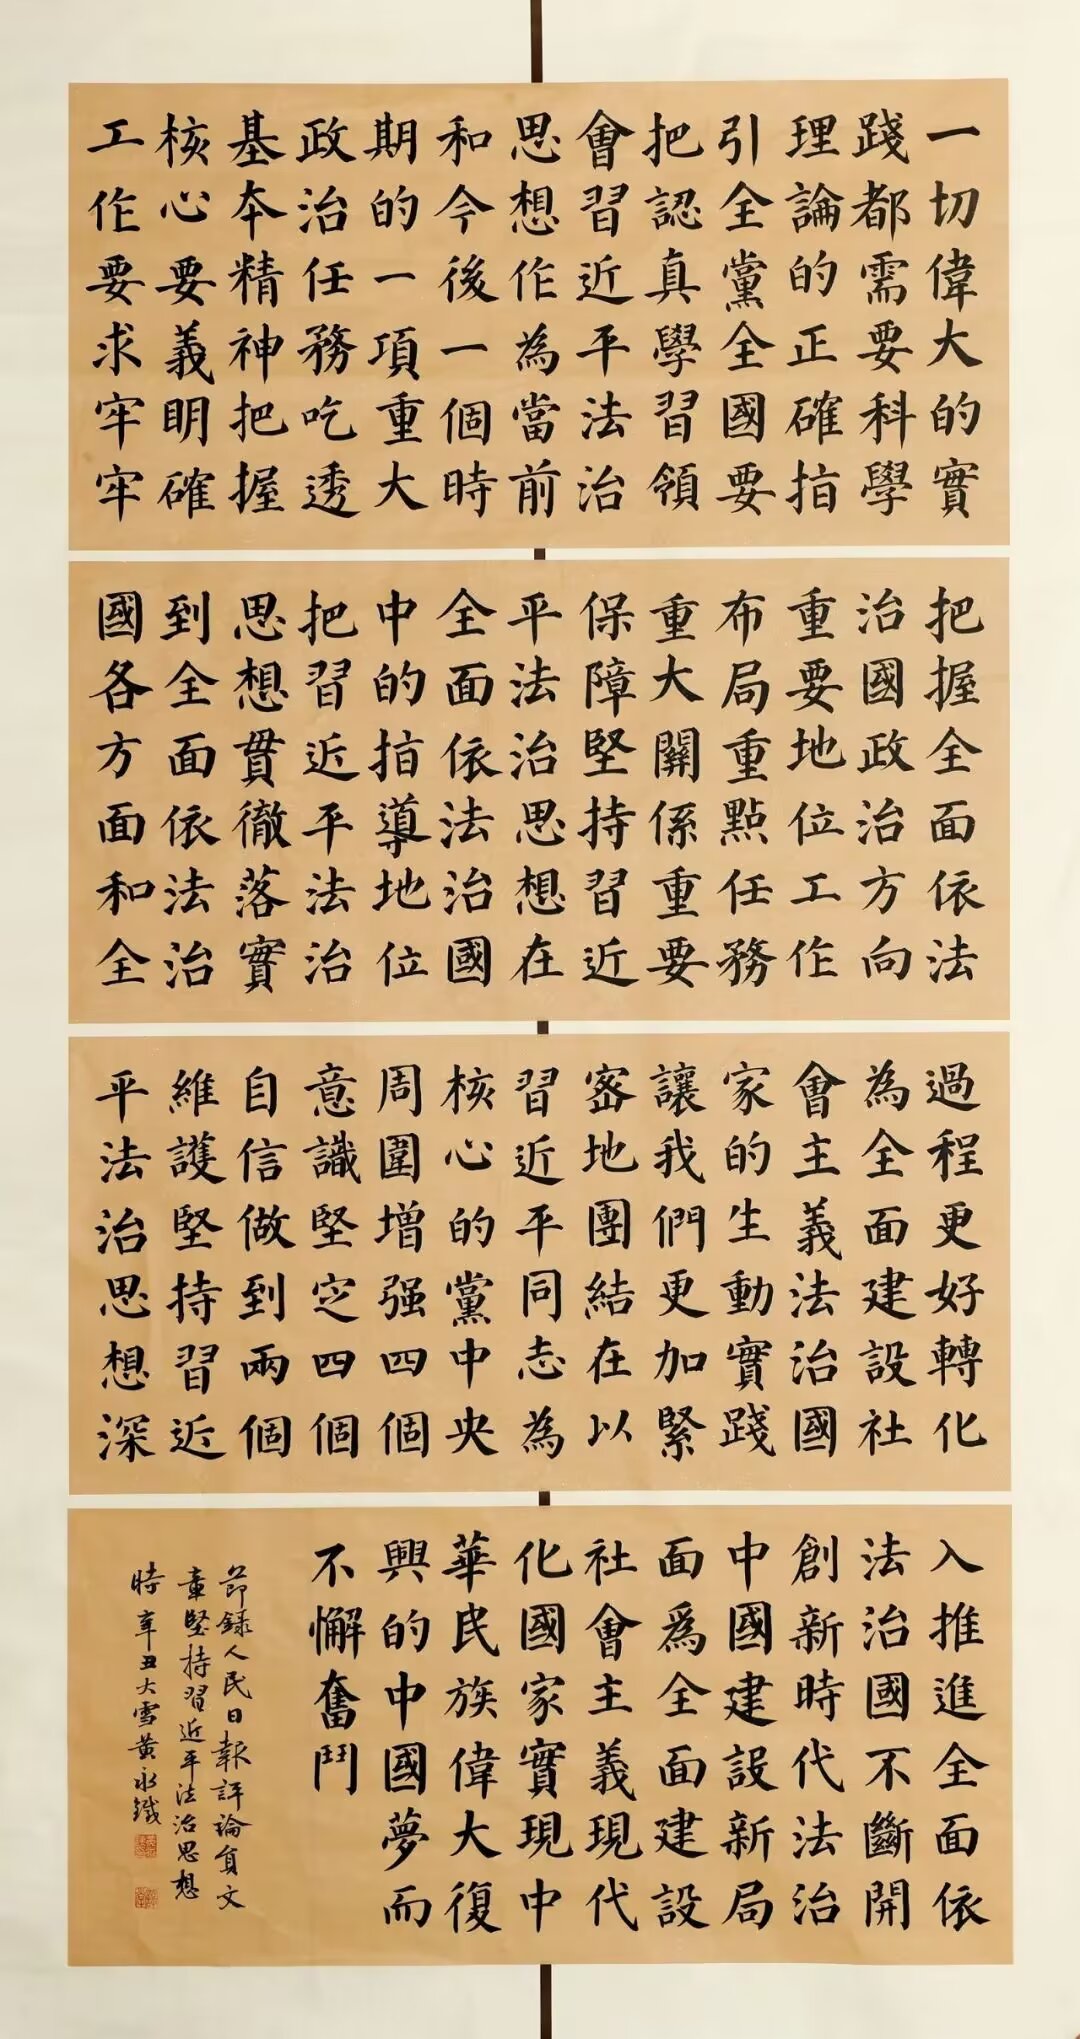 一切偉大的實
踐都需要科學
理論的正確指
引全黨全國要
把認真學習領
會習近平法治
思想作為當前
和今後一個時
期的一項重大
政治任務吃透
基本精神把握
核心要義明確
工作要求牢牢
把握全面依法
治國政治方向
重要地位工作
布局重點任務
重大關係重要
保障堅持習近
平法治思想在
全面依法治國
中的指導地位
把習近平法治
思想貫徹落實
到全面依法治
國各方面和全
過程更好轉化
為全面建設社
會主義法治國
家的生動實踐
讓我們更加緊
密地團結在以
習近平同志為
核心的黨中央
周圍增强四個
意識堅定四個
自信做到兩個
維護堅持習近
平法治思想深
入推進全面依
法治國不斷開
創新時代法治
中國建設新局
面為全面建設
社會主義現代
化國家實現中
華民族偉大復
興的中國夢而
不懈奮鬥
節録人民日報評論員文
章堅持習近平法治思想
時辛丑大雪黄永鐵